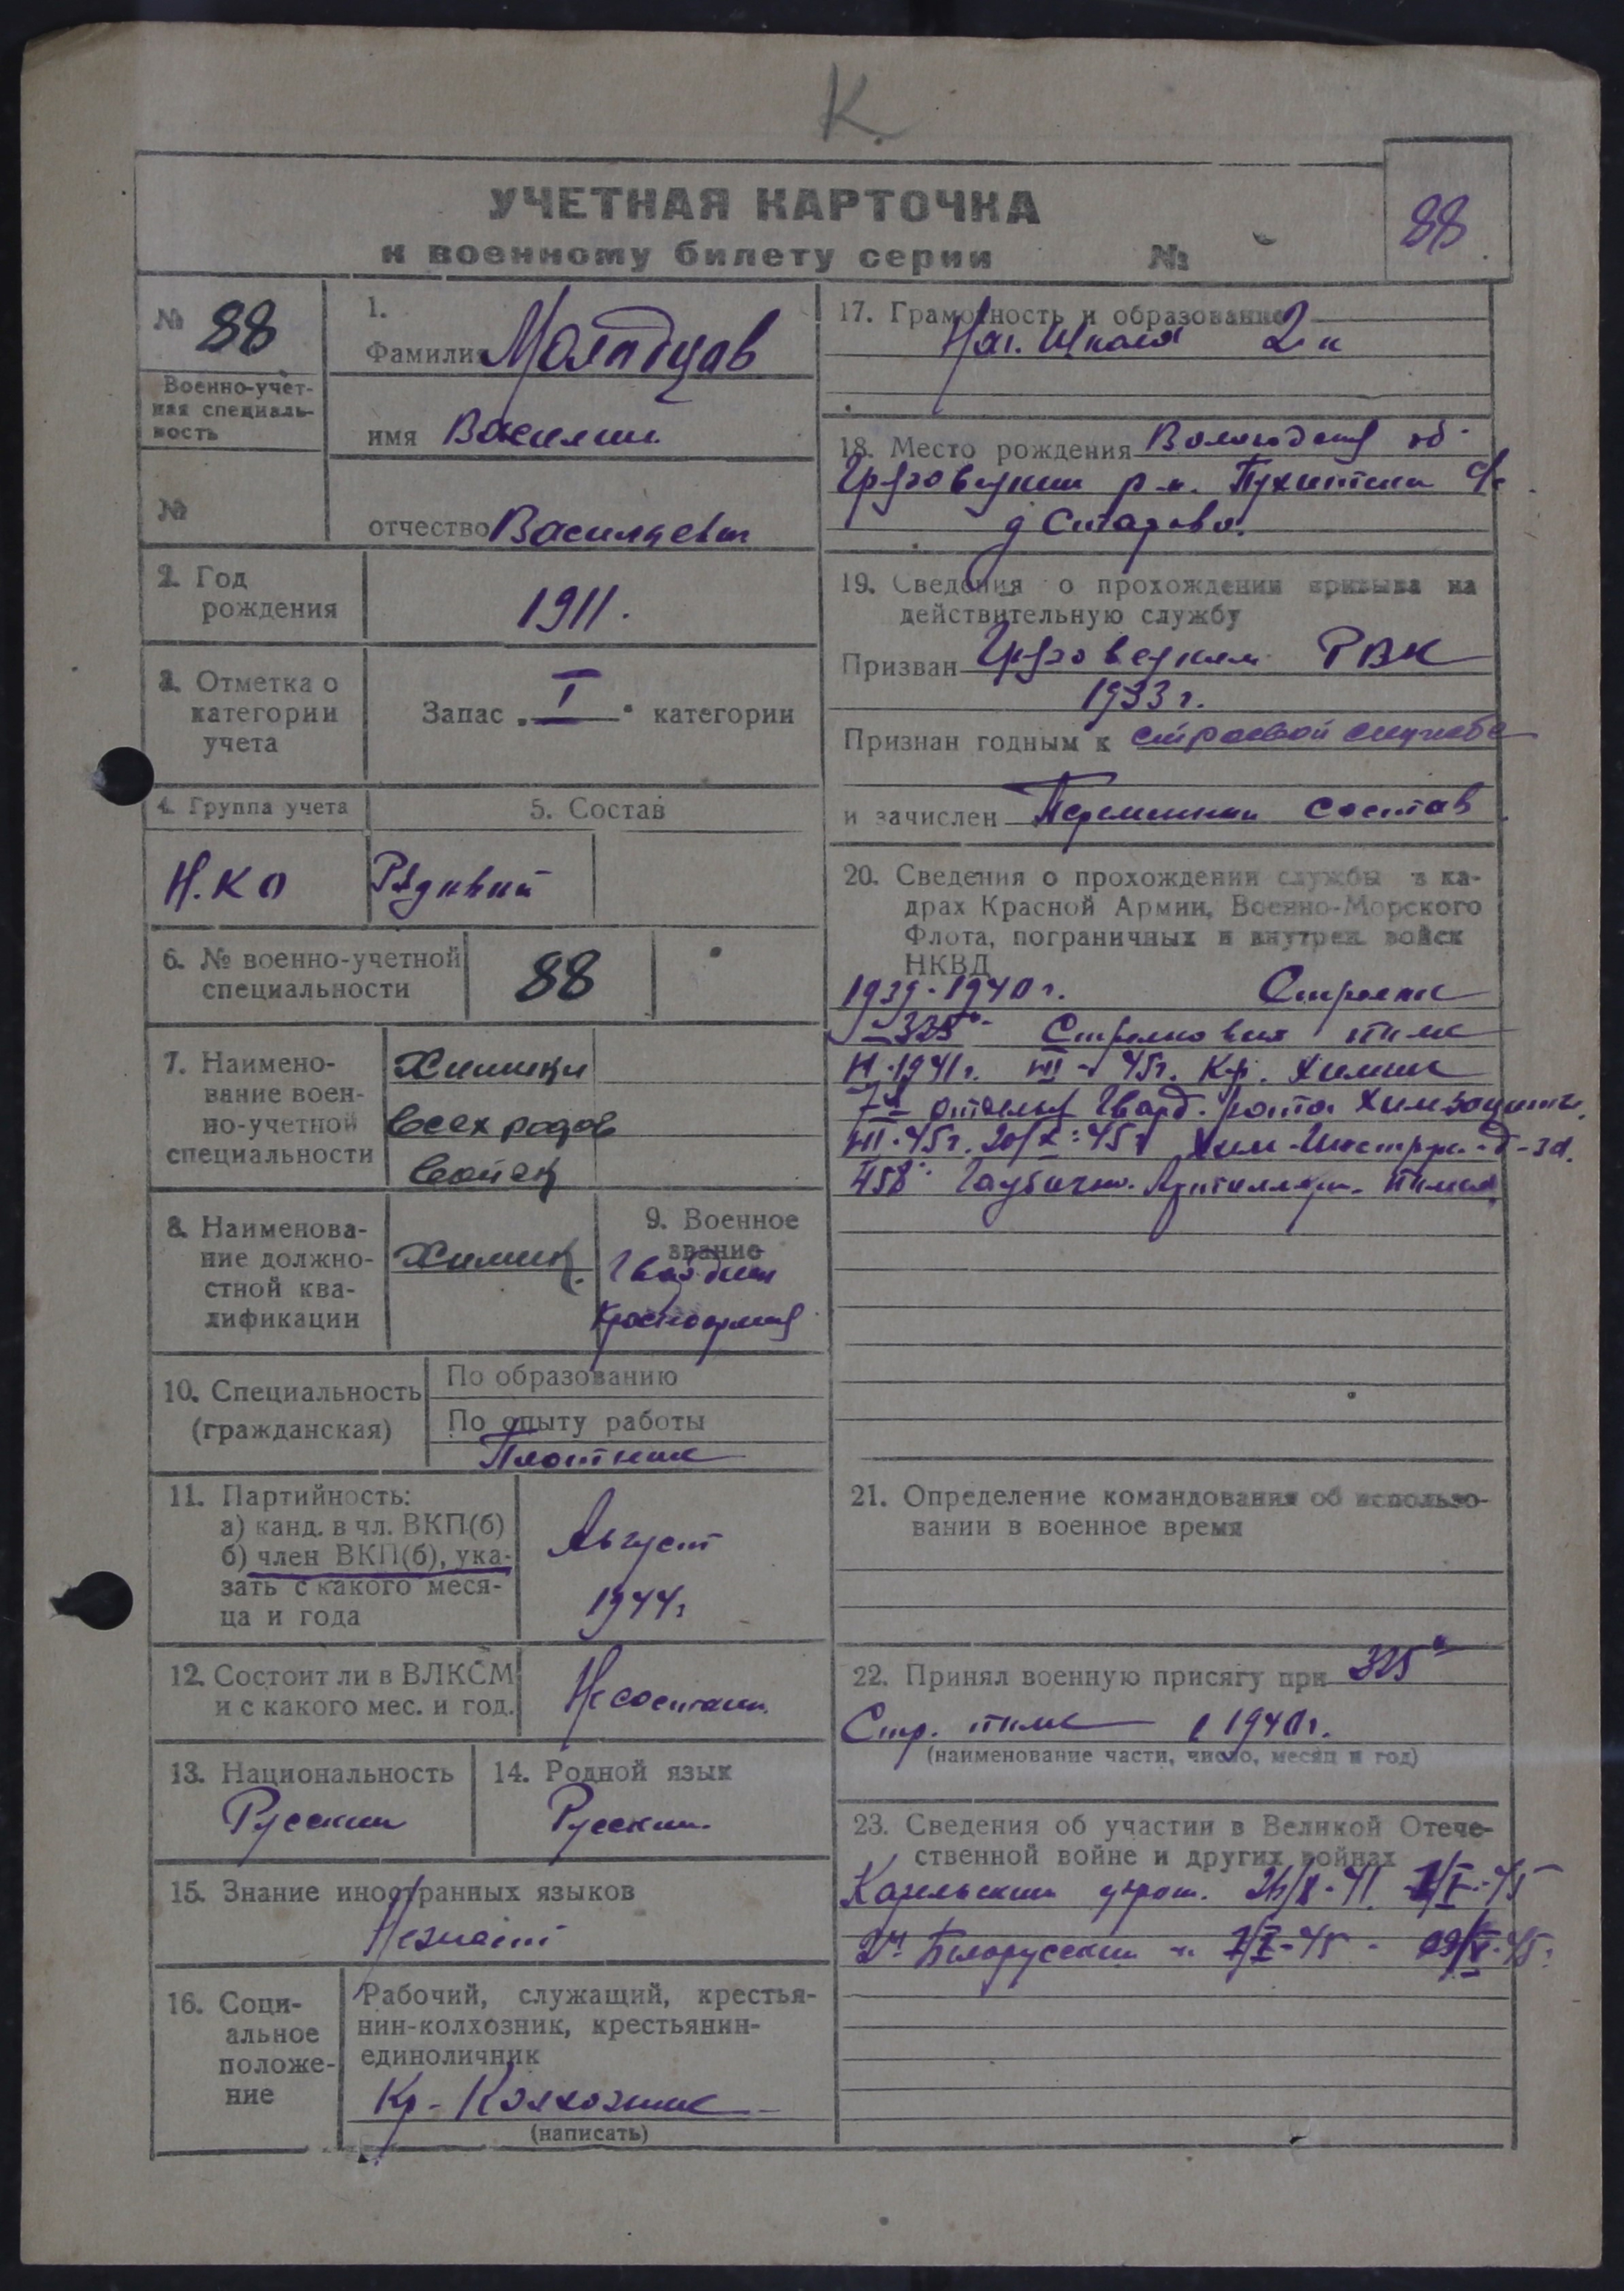 К.
УЧЕТНАЯ КАРТОЧКА
к военному билету серии №
88
№ 88
Военно-учет-
ная специаль-
ность
№
1.
Фамилия Молодцов
имя Василий
отчество Васильевич
2. Год
рождения
1911.
3. Отметка о
категории
учета
Запас „ I “ категории
4. Группа учета
5. Состав
Н.КО
Рядовый
6. № военно-учетной
специальности
88
7. Наимено-
вание воен-
но-учетной
специальности
Химики
всех родов
войск
8. Наименова-
ние должно-
стной ква-
лификации
Химик.
9. Военное
звание
Гвардии
Красноармеец
10. Специальность
(гражданская)
По образованию
По опыту работы
Плотник
11. Партийность:
а) канд. в чл. ВКП(б)
б) член ВКП(б), ука-
зать с какого меся-
ца и года
Август
1944г
12. Состоит ли в ВЛКСМ
и с какого мес. и год.
Не состоит.
13. Национальность
Русский
14. Родной язык
Русский.
15. Знание иностранных языков
Незнает
16. Соци-
альное
положе-
ние
Рабочий, служащий, крестья-
нин-колхозник, крестьянин-
единоличник
Кр- Колхозник
(написать)
17. Грамотность и образование
Нач. Школа 2 к
18. Место рождения Вологодская об.
Грязовецкий р-н.
19. Сведения о прохождении призыва на
действительную службу
Призван Грязовецким РВК
1933 г.
Признан годным к строевой службе
и зачислен Переменный состав
20. Сведения о прохождении службы в ка-
драх Красной Армии, Военно-Морского
Флота, пограничных и внутрен. войск
НКВД
1939-1940 г. Стрелок
325 Стрелковый полк
1941г. VIII-45г. Кр. Химик
7я отдельн Гвард. рота Химзащиты.
VIII-45г. 20/X-45г Хим-Инструк.
458 Гаубично. Артиллер. Полка
21. Определение командования об использо-
вании в военное время
22. Принял военную присягу при 325
Стр. полк 1940г.
(наименование части, число, месяц и год)
23. Сведения об участии в Великой Отече-
ственной войне и других войнах
Карельский фронт. 26/X-41. 1/I-45
2й Белорусский " 1/I-45 - 09/V-45.